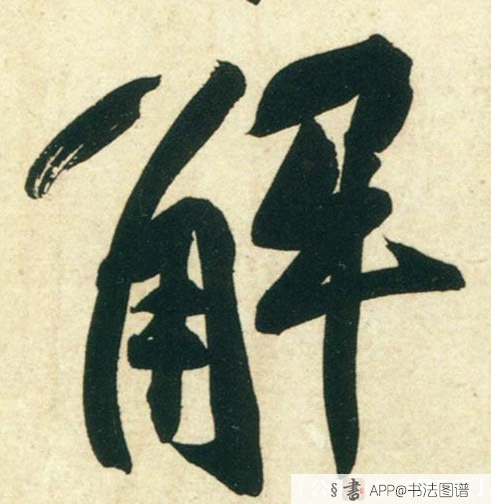 解
§ 書 APP@书法图谱